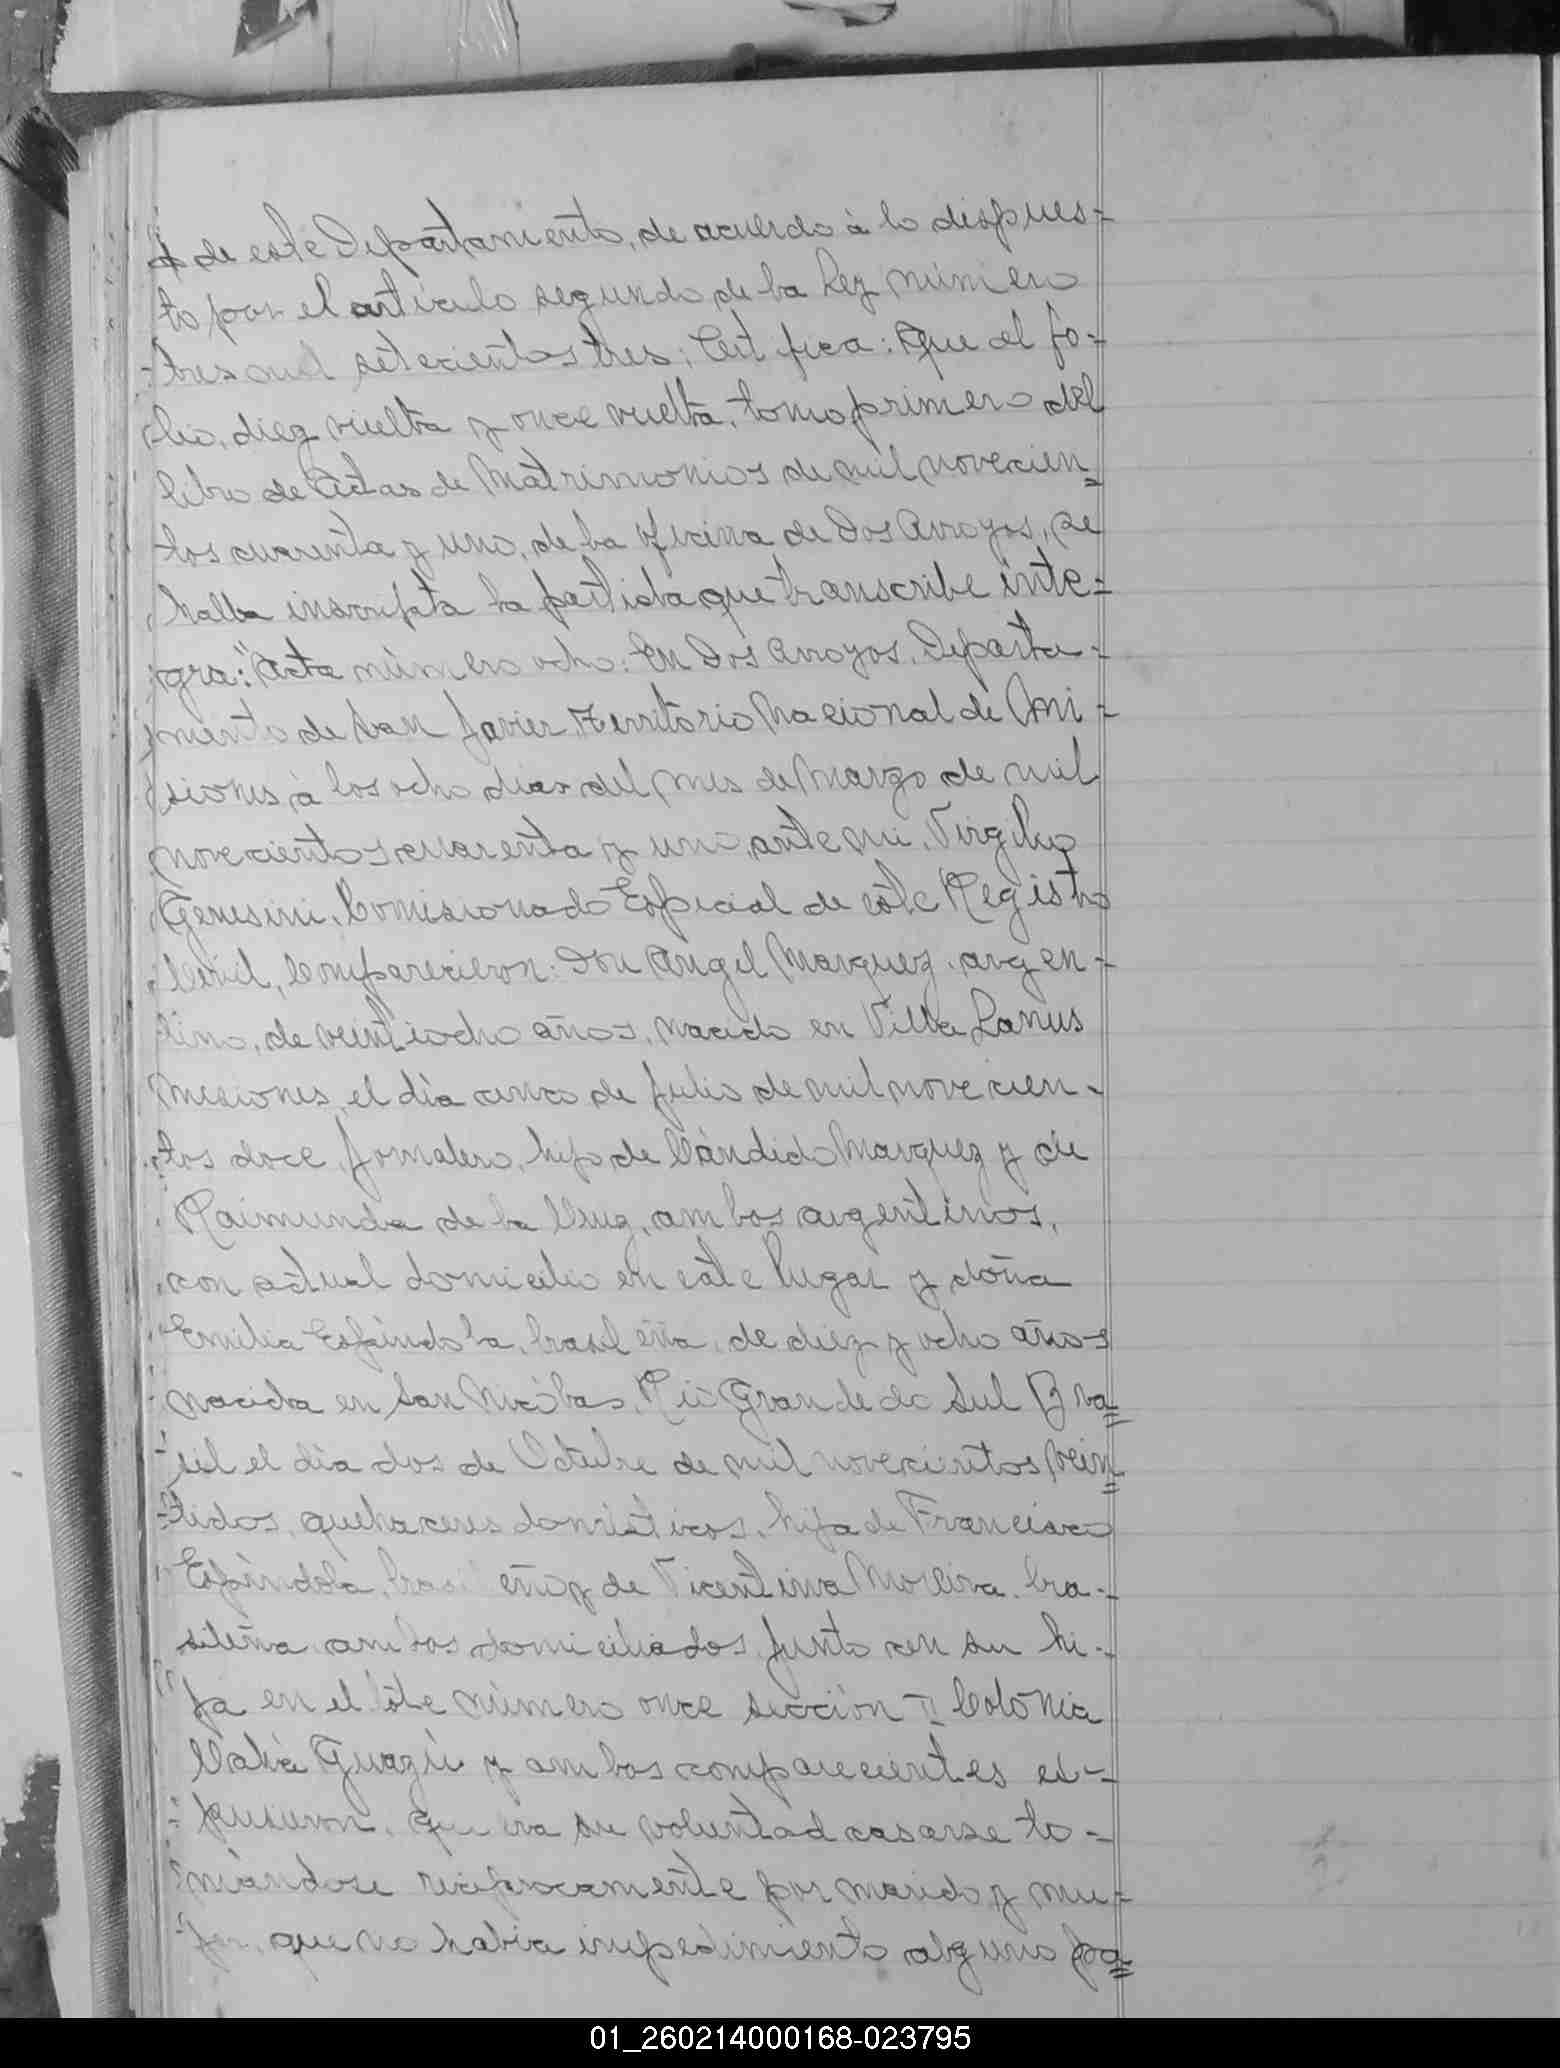 de este Departamento, de acuerdo à lo dispues=
to por el artículo segundo de la Ley número
tres mil setecientos tres; Certifica: Que al fo=
lio, diez vuelta y once vuelta, tomo primero del
libro de Actas de Matrimonios de mil novecien=
tos cuarenta y uno, de la oficina de Dos Arroyos, se
halla inscripta la partida que transcribe inte=
gra: "Acta número ocho: En Dos Arroyos, Departa=
mento de San Javier, Territorio Nacional de Mi=
siones, à los ocho dias del mes de Marzo de mil
novecientos cuarenta y uno, ante mi, Virgilio
Genesini, Comisionado Especial de este Registro
Civil, Comparecieron: Don Angel Marquez, argen=
tino, de veintiocho años, nacido en Villa Lanus
Misiones, el día cinco de Julio de mil novecien-
tos doce, Jornalero, hijo de Cándido Marquez y de
Raimunda de la Cruz, ambos argentinos,
con actual domicilio en este lugar y doña
Emilia Espíndola, brasileña, de diez y ocho años
nacida en San Nicolas, Rio Grande do Sul Bra=
sil el día dos de Octubre de mil novecientos vein=
tidos, quehaceres domésticos, hija de Francisco
Espíndola, brasileño y de Vicentina Moreira, bra=
sileña ambos domiciliados junto con su hi=
ja en el lote número once sección II Colonia
Guazú y ambos comparecientes ex=
pusieron, que era su voluntad casarse to=
mándose reciprocamente por marido y mu=
jer, que no había impedimento alguno pa=
01_260214000168-023795